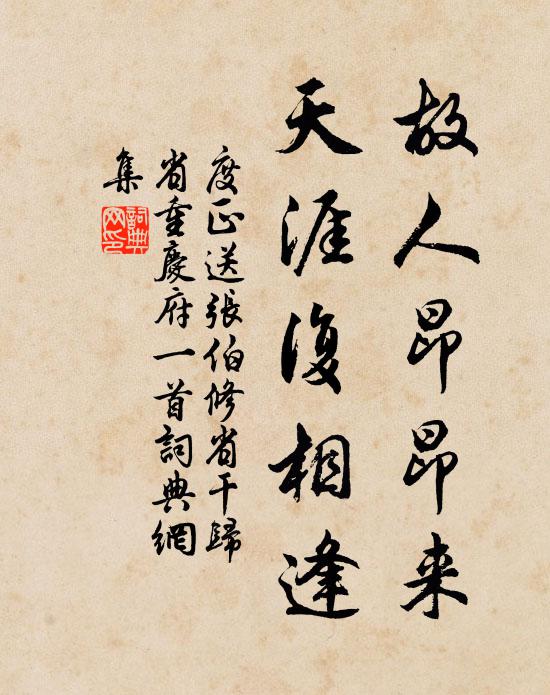 故人昂昂来
天涯復相逢
度正送張伯修省干歸
省重慶府一首詞典網
集
詞典网印